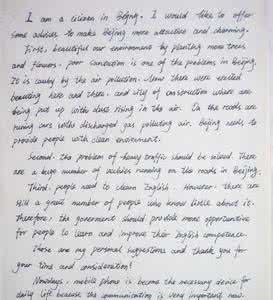 I am a citizen in Beijing. I would like to offer
some advices to make Beijing more attractive and charming.
First, beautiful our environment by planting more trees
and flowers. poor sanitation is one of the problems in Beijing.
It is caused by the air pollution. Now there were erected
here and there, and of construction where are
being put up with dust rising in the air. On the roads are
cars with discharged gas polluting air. Beijing needs to
provide people with clean environment.
Second, the problem of heavy traffic should be There
are a huge number of vechiles running on the roads in Beijing.
Third, people need to English. However, there are
still a great number of people who know little about it.
Therefore, the government should provide more opportunities
for people to learn and improve their English competence.
These are my personal suggestions and thank you for
your time and consideration!
Nowadays, mobile phone is become the necessary device for
daily life because the communication is very important now.